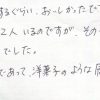 するぐらい、おいしかったで
2人いるのですが、その
でした。
であって、洋菓子のような